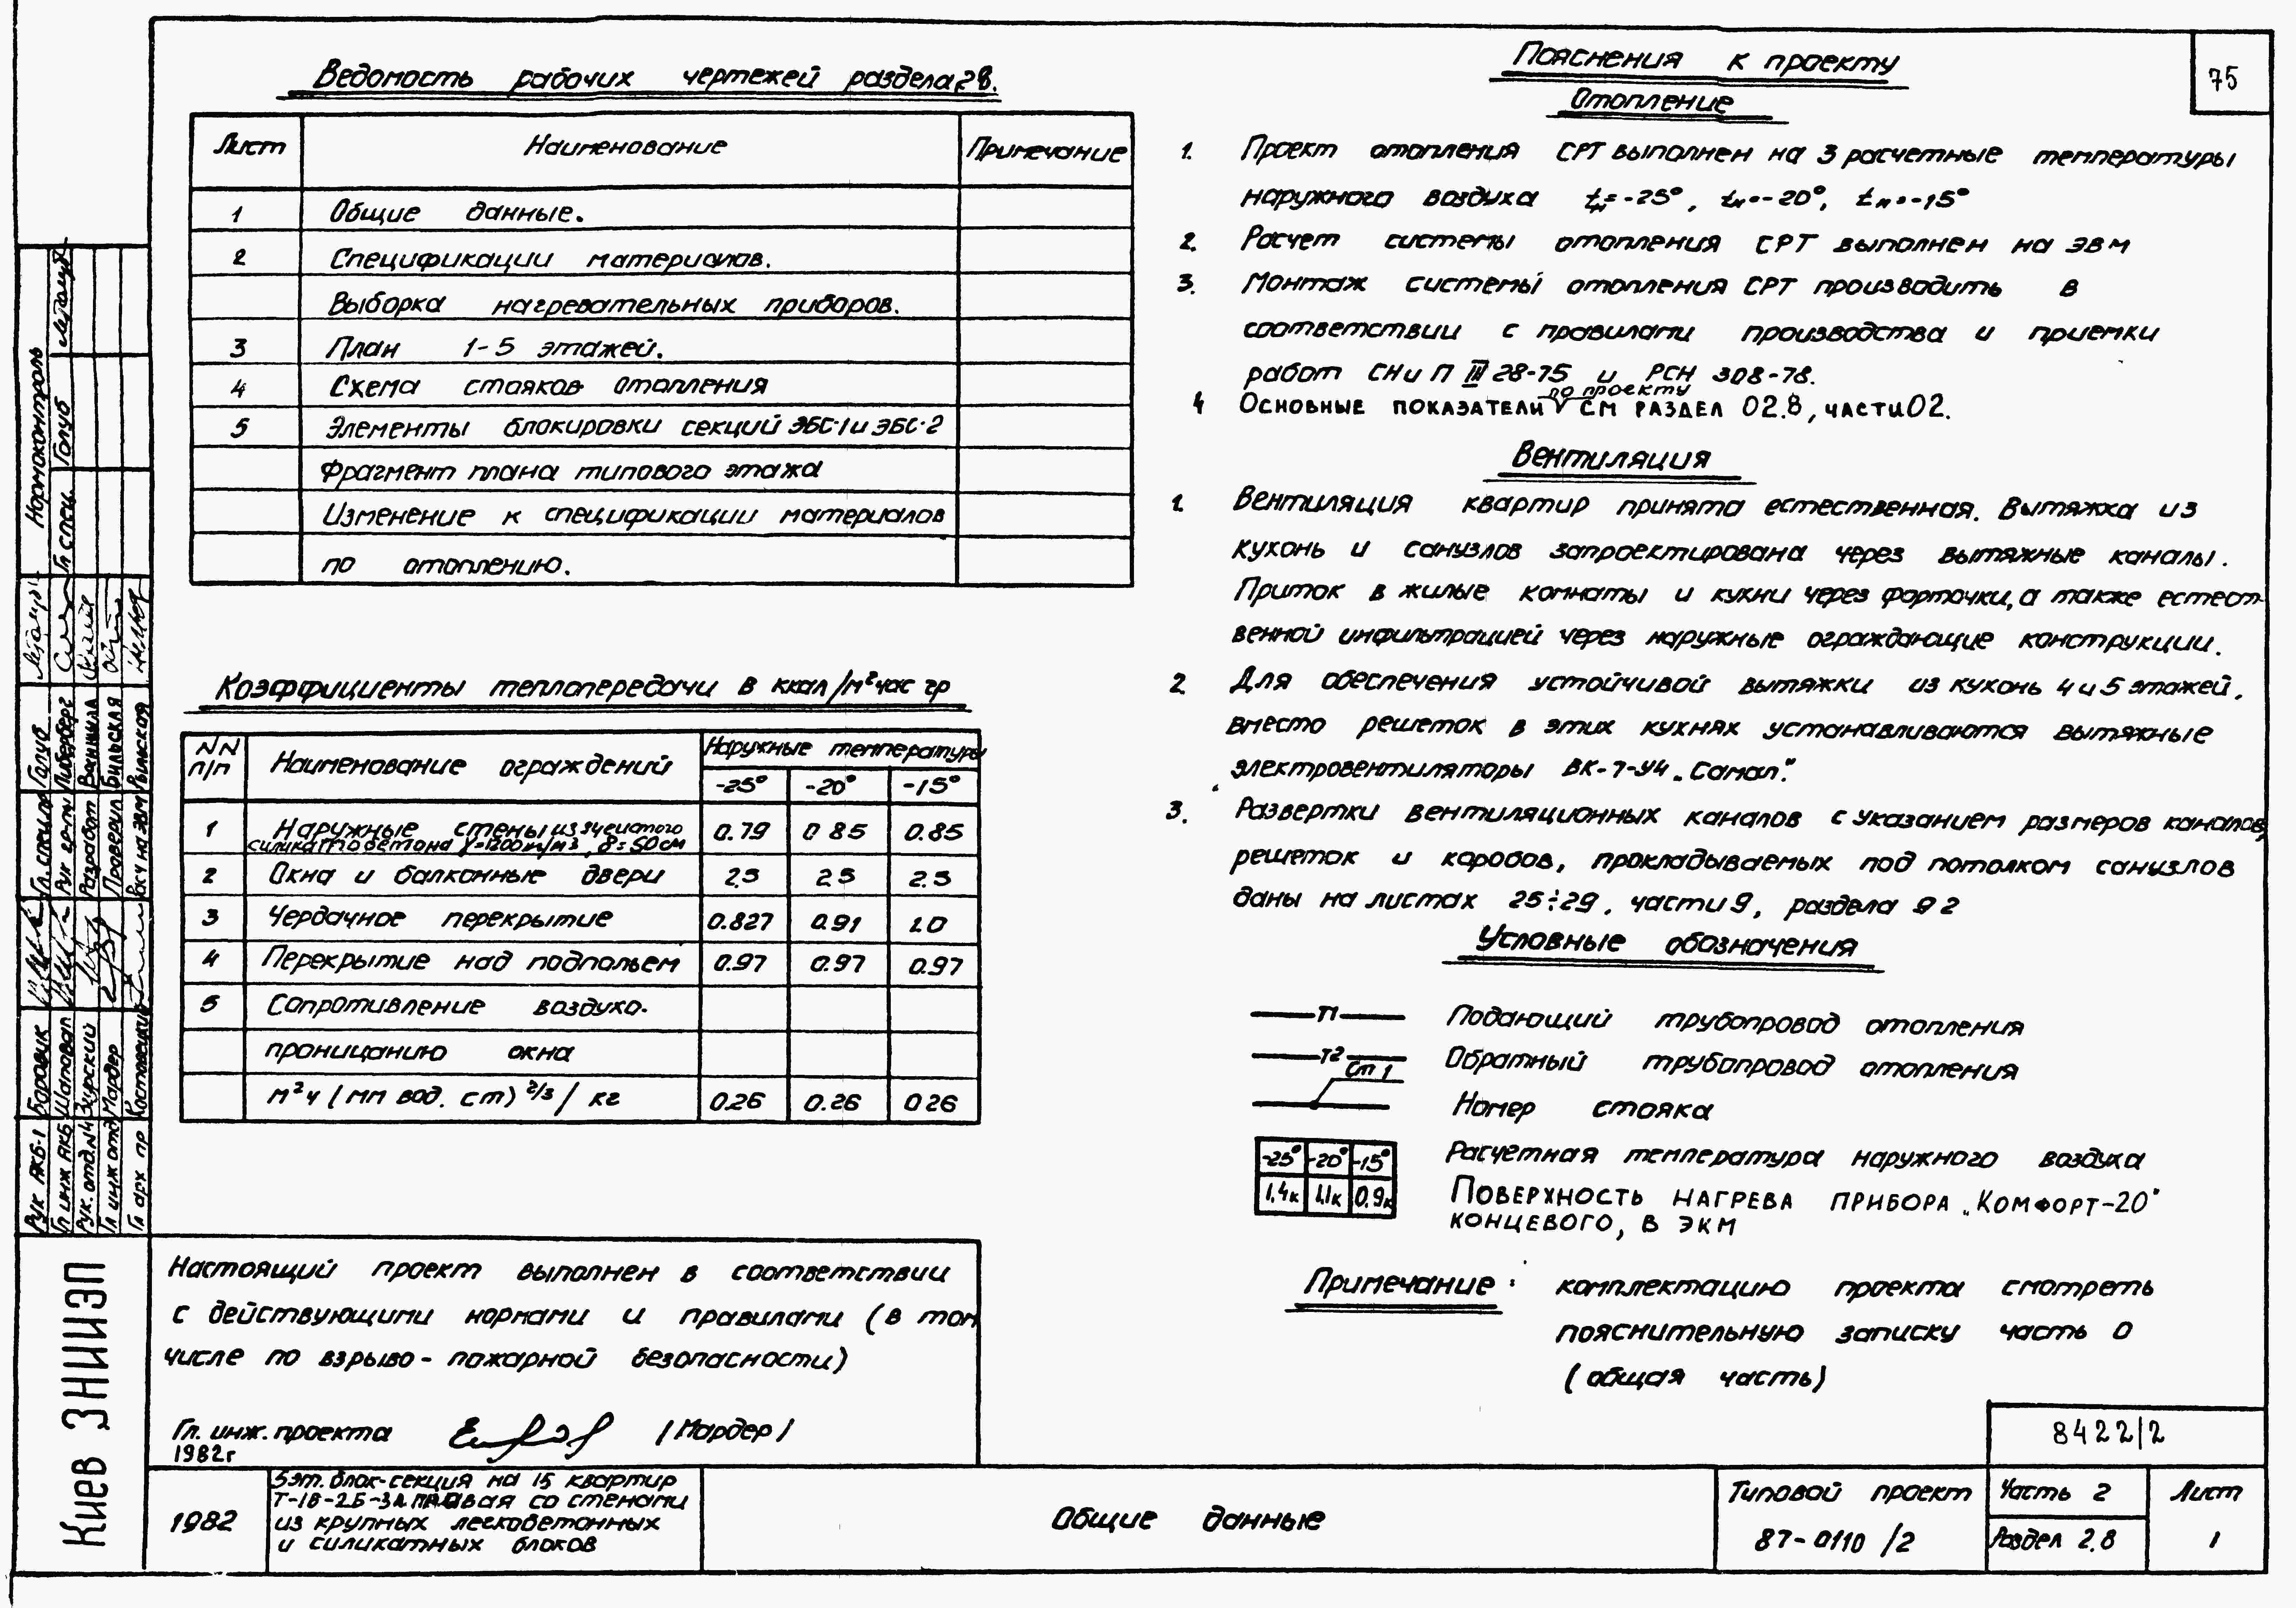 75
Ведомость рабочих чертежей раздела 2.8.
Лист Наименование Примечание
1 Общие данные.
2 Спецификации материалов.
Выборка нагревательных приборов.
3 План 1-5 этажей.
4 Схема стояков отопления
5 Элементы блокировки секций ЭБС-1 и ЭБС-2
Фрагмент плана типового этажа
Изменение к спецификации материалов
по отоплению.
Коэффициенты теплопередачи в ккал/м² час гр
NN п/п Наименование ограждений Наружные температуры
-25° -20° -15°
1 Наружные стены из ячеистого 0.79 0 85 0.85
силикатобетона γ=1200 т/м3, δ=50 см
2 Окна и балконные двери 2.5 2.5 2.5
3 Чердачное перекрытие 0.827 0.91 1.0
4 Перекрытие над подпольем 0.97 0.97 0.97
5 Сопротивление воздухо-
проницанию окна
м² ч (мм вод. ст) 2/3 / кг 0.26 0.26 0 26
Настоящий проект выполнен в соответствии
с действующими нормами и правилами (в том
числе по взрыво-пожарной безопасности)
Гл. инж. проекта /Мардер/
1982г
Пояснения к проекту
Отопление
1. Проект отопления СРТ выполнен на 3 расчетные температуры
наружного воздуха tн=-25°, tн=-20°, tн=-15°
2. Расчет системы отопления СРТ выполнен на ЭВМ
3. Монтаж системы отопления СРТ производить в
соответствии с правилами производства и приемки
работ СНиП III 28-75 и РСН 308-78.
по проекту
4 Основные показатели V см раздел 02.8, части 02.
Вентиляция
1. Вентиляция квартир принята естественная. Вытяжка из
кухонь и санузлов запроектирована через вытяжные каналы.
Приток в жилые комнаты и кухни через форточки, а также естест-
венной инфильтрацией через наружные ограждающие конструкции.
2. Для обеспечения устойчивой вытяжки из кухонь 4 и 5 этажей,
вместо решеток в этих кухнях устанавливаются вытяжные
электровентиляторы ВК-7-У4 „Самал".
3. Развертки вентиляционных каналов с указанием размеров каналов,
решеток и коробов, прокладываемых под потолком санузлов
даны на листах 25÷29, части 9, раздела 9 2
Условные обозначения
Т1 Подающий трубопровод отопления
Т2 Обратный трубопровод отопления
Ст 1 Номер стояка
-25° -20° -15° Расчетная температура наружного воздуха
1,4к 1.1к 0.9к Поверхность нагрева прибора „Комфорт-20"
концевого, в экм
Примечание: комплектацию проекта смотреть
пояснительную записку часть 0
(общая часть)
8422/2
1982
5эт. блок-секция на 15 квартир
Т-1Б-2Б-3А правая со стенами
из крупных легкобетонных
и силикатных блоков
Общие данные
Типовой проект
87-0110/2
Часть 2
Раздел 2.8
Лист
1
Киев ЗНИИЭП
Рук АКБ-1 Боровик Гл. специал Голуб Нормоконтроль
Гл инж АКБ Шаповал Рук гр-пы Либерберг Гл спец. Голуб
Рук. отд. N4 Згурский Разработ
Гл инж отд Мардер Проверил Бильская
Гл арх пр Костовецкий Расч на ЭВМ Рыльская